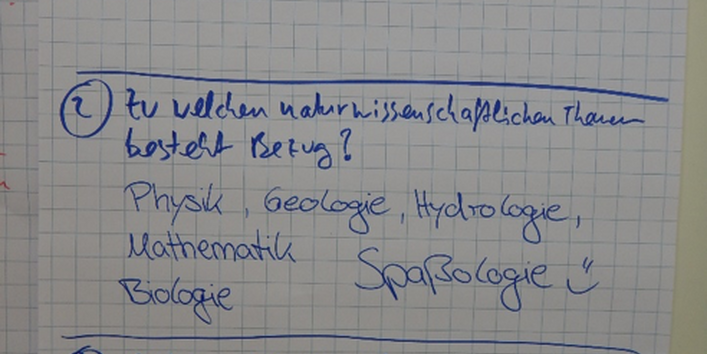 2 Zu welchen naturwissenschaftlichen Themen
besteht Bezug?
Physik, Geologie, Hydrologie,
Mathematik Spaßologie
Biologie